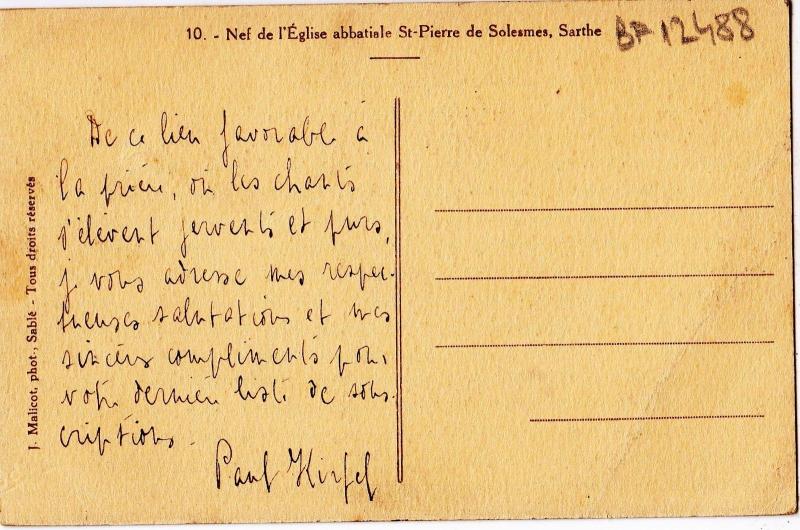 10. - Nef de l'Église abbatiale St-Pierre de Solesmes, Sarthe
BF 12488
De ce lieu favorable à
la prière, où les chants
s'élèvent fervents et purs,
je vous adresse mes respec-
tueuses salutations et mes
sincères compliments pour
votre dernière liste de sous-
criptions.
Paul Kirfel
J. Malicot, phot., Sablé - Tous droits réservés